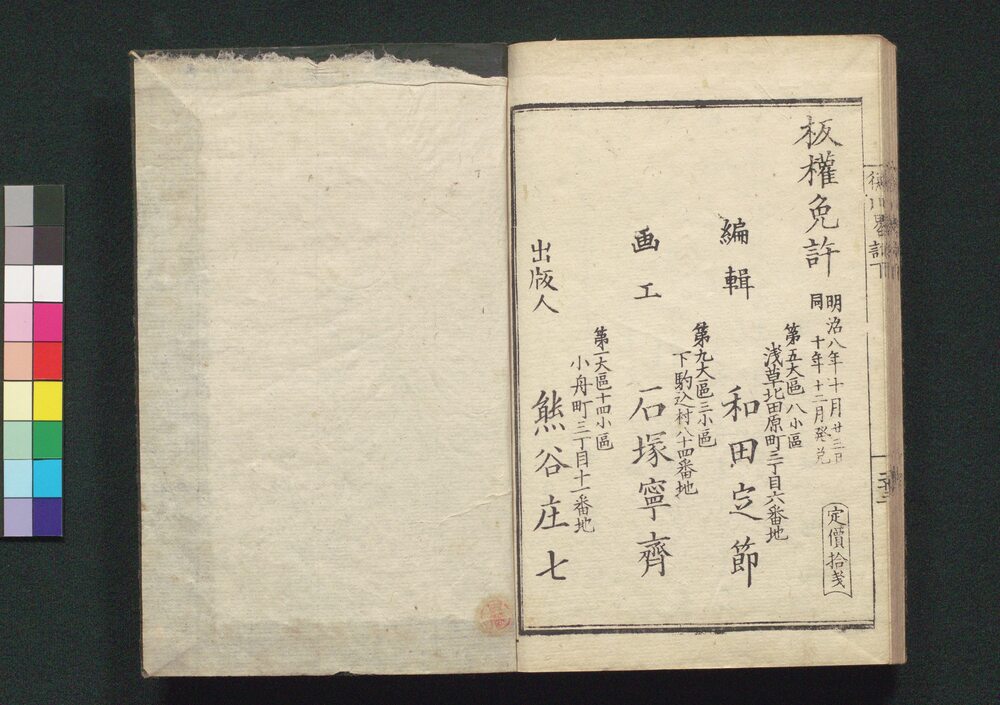 板權免許
明治八年十月廿三日
同十年十二月発兌
定價拾戔
編輯
第五大區八小區
浅草北田原町三丁目六番地
和田定節
画工
第九大區三小區
下駒込村八十四番地
石塚寧齊
出版人
第一大區十四小區
小舟町三丁目十一番地
熊谷庄七